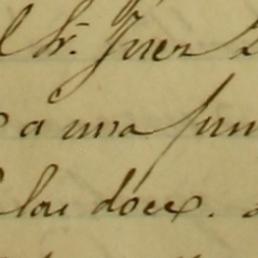 Sr. Juez
a una fun
las doce.